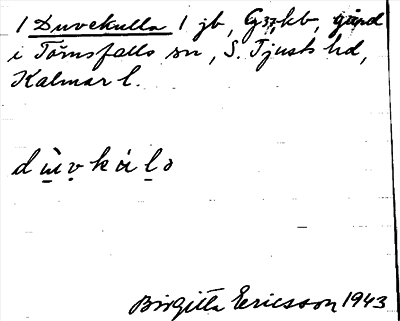 1 Duvekulla 1 jb, Gsjkb, gård
i Törnsfalls sn, S. Tjusts hd,
Kalmar l.
dùvkálə
Birgitta Ericsson 1943